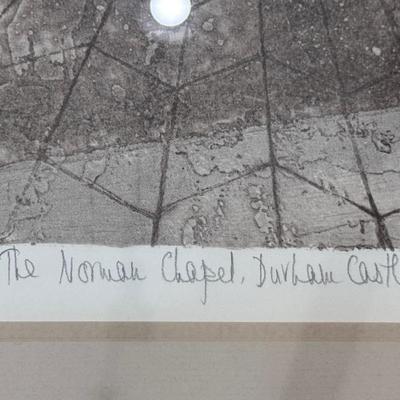 The Norman Chapel, Durham Castl